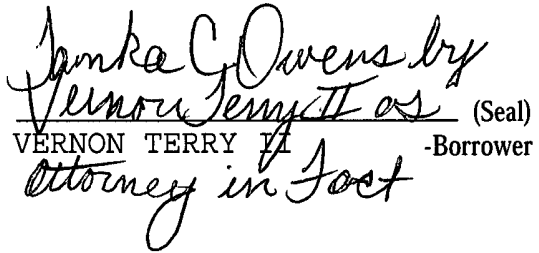 Tamka C Owens by
Vernon Terry II as (Seal)
VERNON TERRY II -Borrower
attorney in Fact